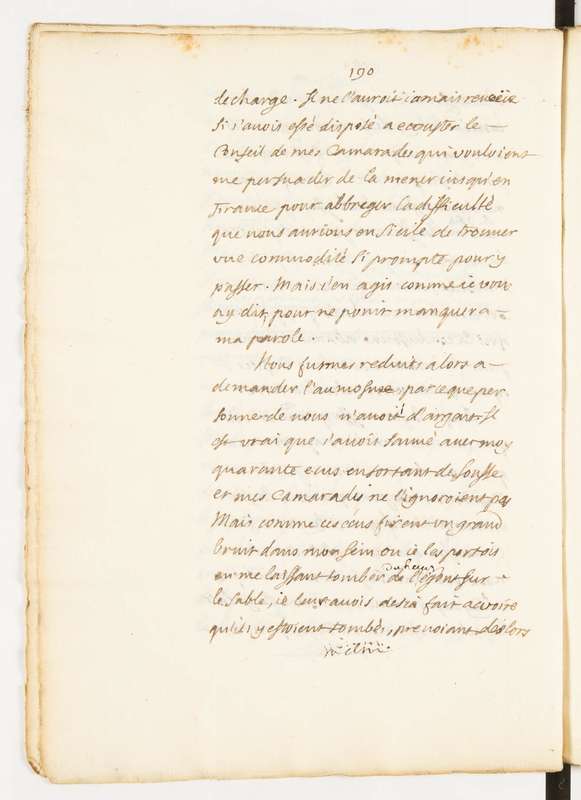 190
decharge. Il ne l'auroit iamais reveüe
Si i'auois esté disposé a ecouster le
Conseil de mes Camarades qui vouloient
me persuader de la mener iusqu'en
France pour abbreger la difficulté
que nous aurions en Sicile de trouuer
vne commodité si prompte pour y
passer. Mais i'en agis comme ie vous
ay dit, pour ne point manquer a
ma parole.
Nous fumes reduits alors a
demander l'aumosne parceque per
sonne de nous n'auoit d'argent. Il
est vrai que i'auois sauué auec moy
quarante ecus en sortant de Sousse
et mes Camarades ne l'ignoroient pas
Mais comme ces écus firent vn grand
bruit dans mon sein ou ie les portois
en me laissant tomber de l'esquif sur
le sable, ie leur auois desià fait accroire
qu'ils y estoient tombés, preuoiant deslors